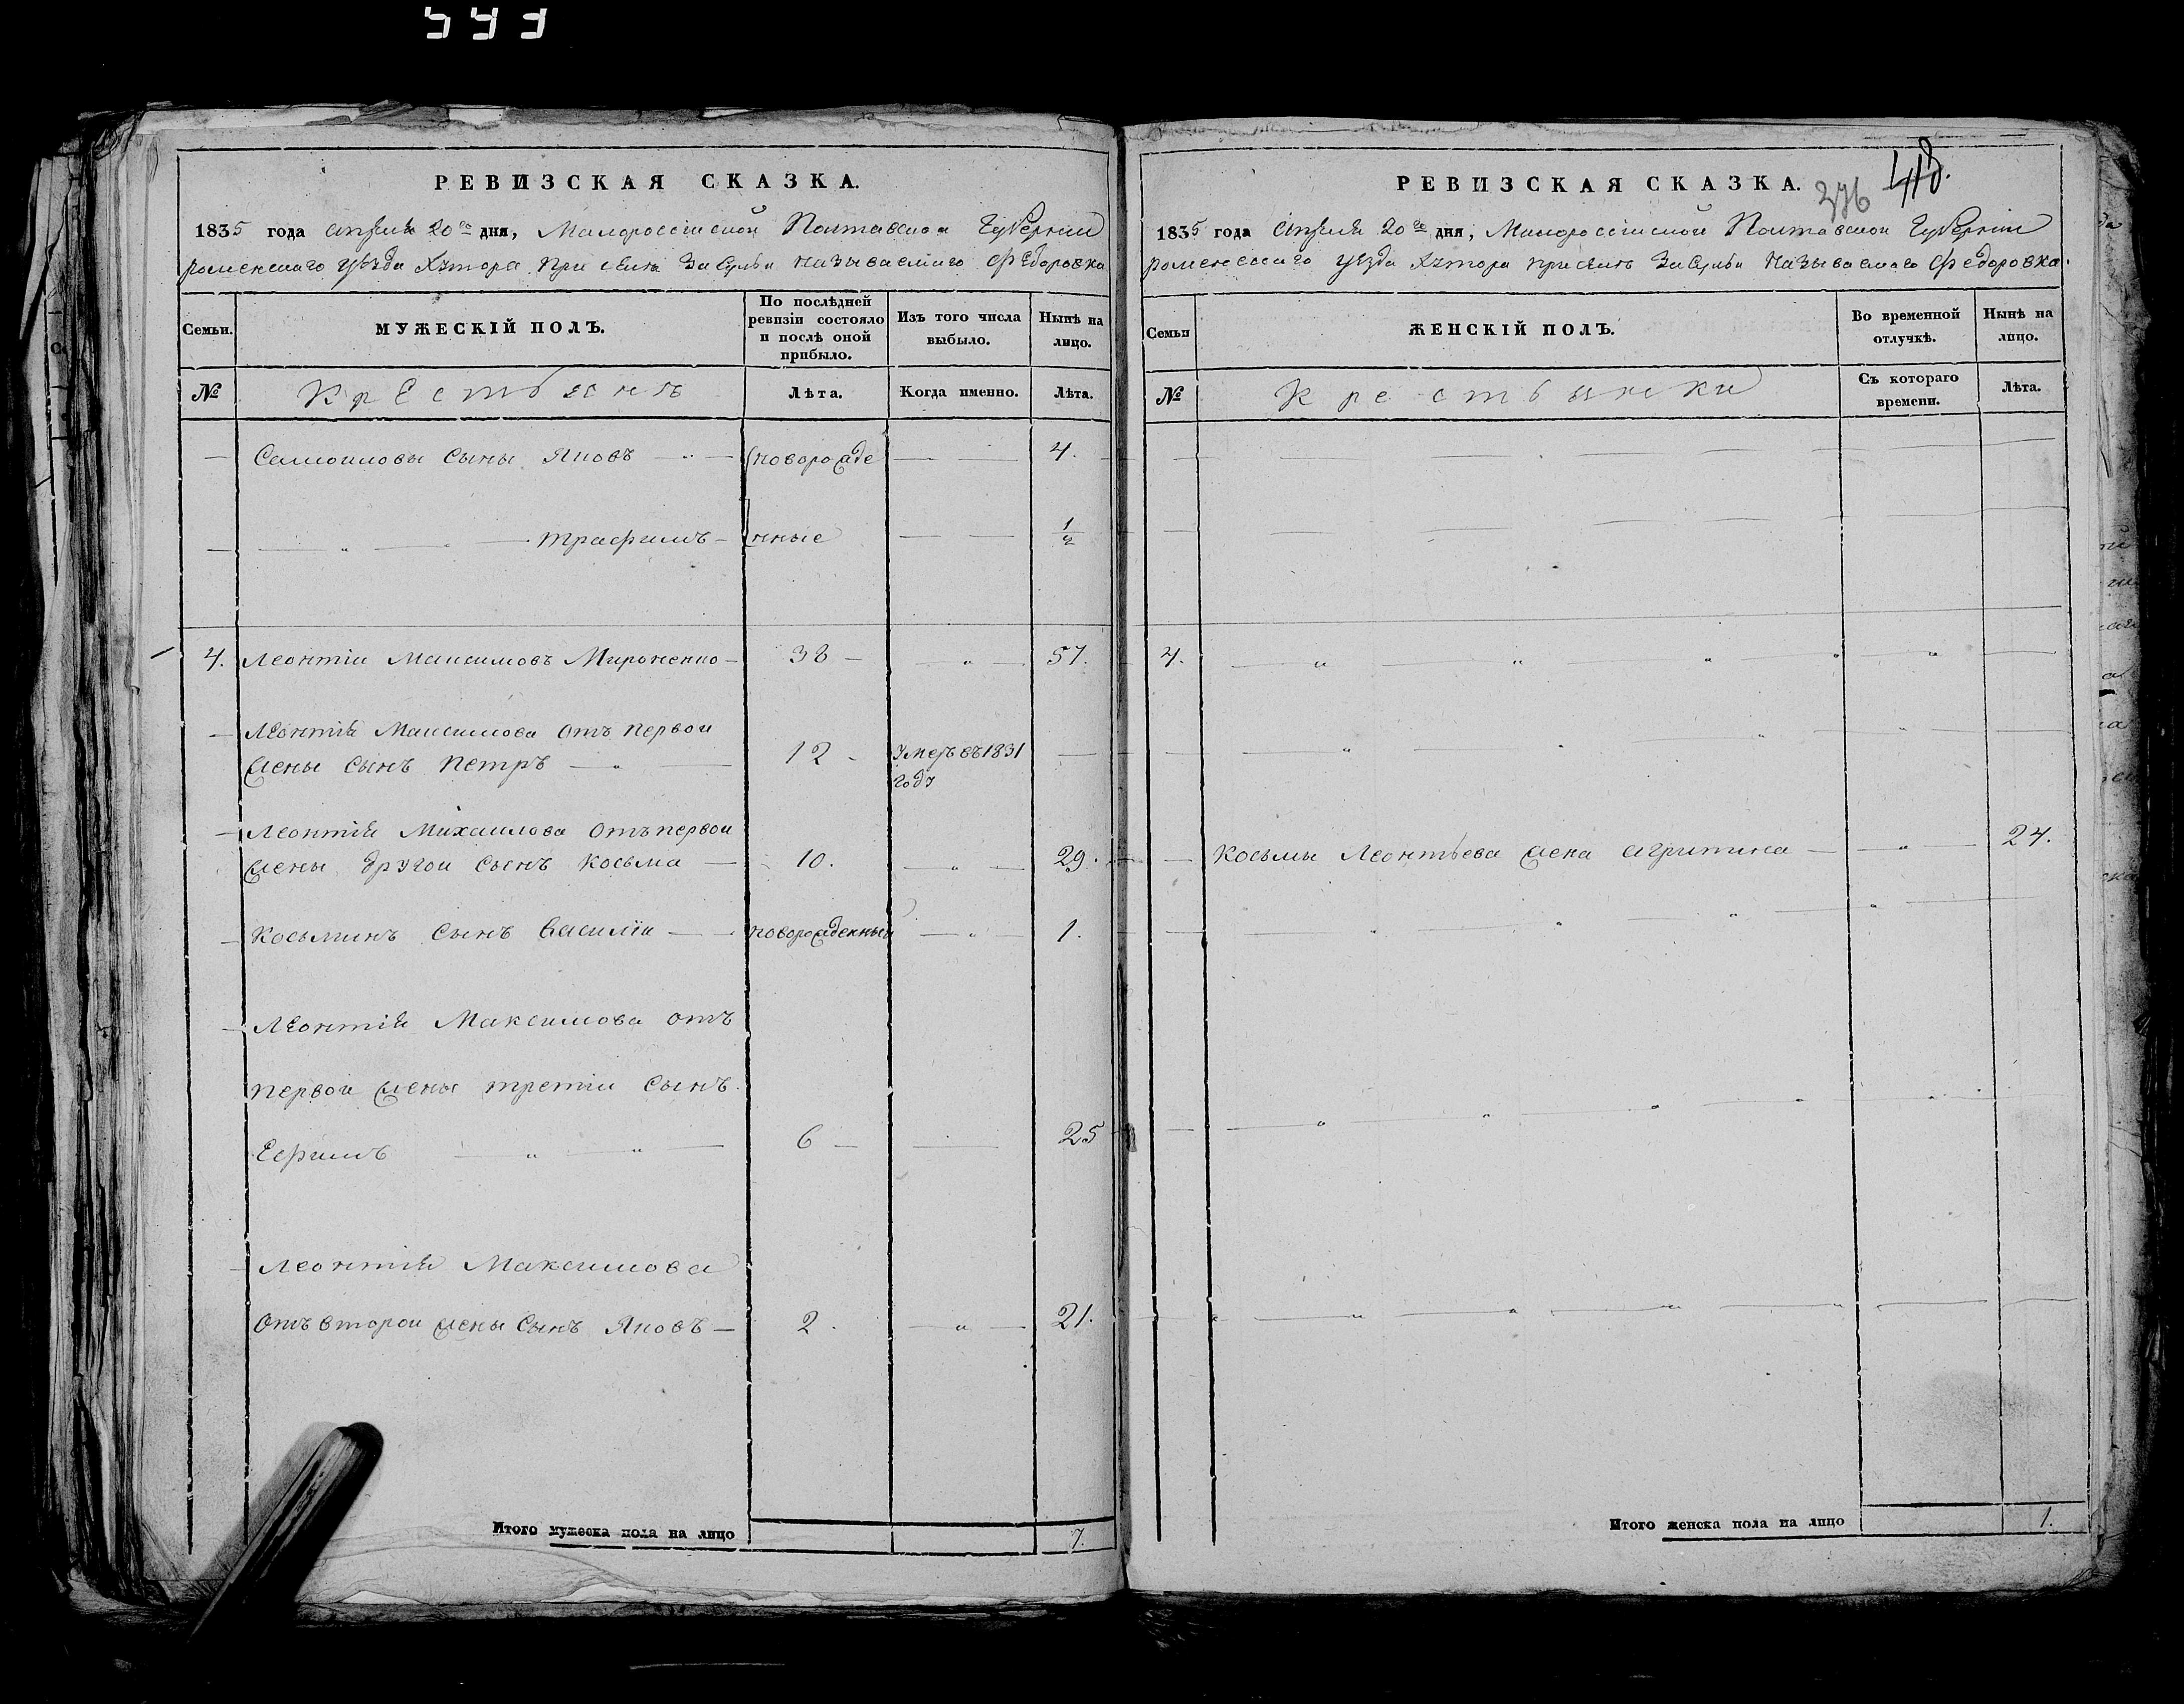 РЕВИЗСКАЯ СКАЗКА.
1835 года апреля 20го дня, Малоросійской Полтавской Губерніи
роменскаго уезда Хутора при селе Засульи называемаго Федоровка
Семьи.
МУЖЕСКІЙ ПОЛЪ.
По послѣдней ревизіи состояло и послѣ оной прибыло.
Изъ того числа выбыло.
Нынѣ на лицо.
№
Крестьянъ
Лѣта.
Когда именно.
Лѣта.
Самоиловы сыны Яковъ новорожде 4.
Трафимъ нные 1/2
4. Леонтіи Максимовъ Мироненко 38 57.
Леонтія Максимова отъ первои
жены сынъ Петръ 12 Умеръ въ 1831
году
Леонтія Михаилова отъ первои
жены другои сынъ Косьма 10. 29.
Косьминъ сынъ Василіи новорожденныи 1.
Леонтія Максимова отъ
первои жены третіи сынъ
Ефимъ 6 25
Леонтія Максимова
отъ второи жены сынъ Яковъ 2. 21.
Итого мужеска пола на лицо 7.
РЕВИЗСКАЯ СКАЗКА.
376
418.
1835 года апреля 20го дня, Малоросійской Полтавской Губерніи
роменскаго уезда Хутора при селе Засульи называемаго Федоровка.
Семьи
ЖЕНСКІЙ ПОЛЪ.
Во временной отлучкѣ.
Нынѣ на лицо.
№
Крестьянки
Съ котораго времени.
Лѣта.
4.
Косьмы Леонтьева жена Агрипина 24.
Итого женска пола на лицо 1.